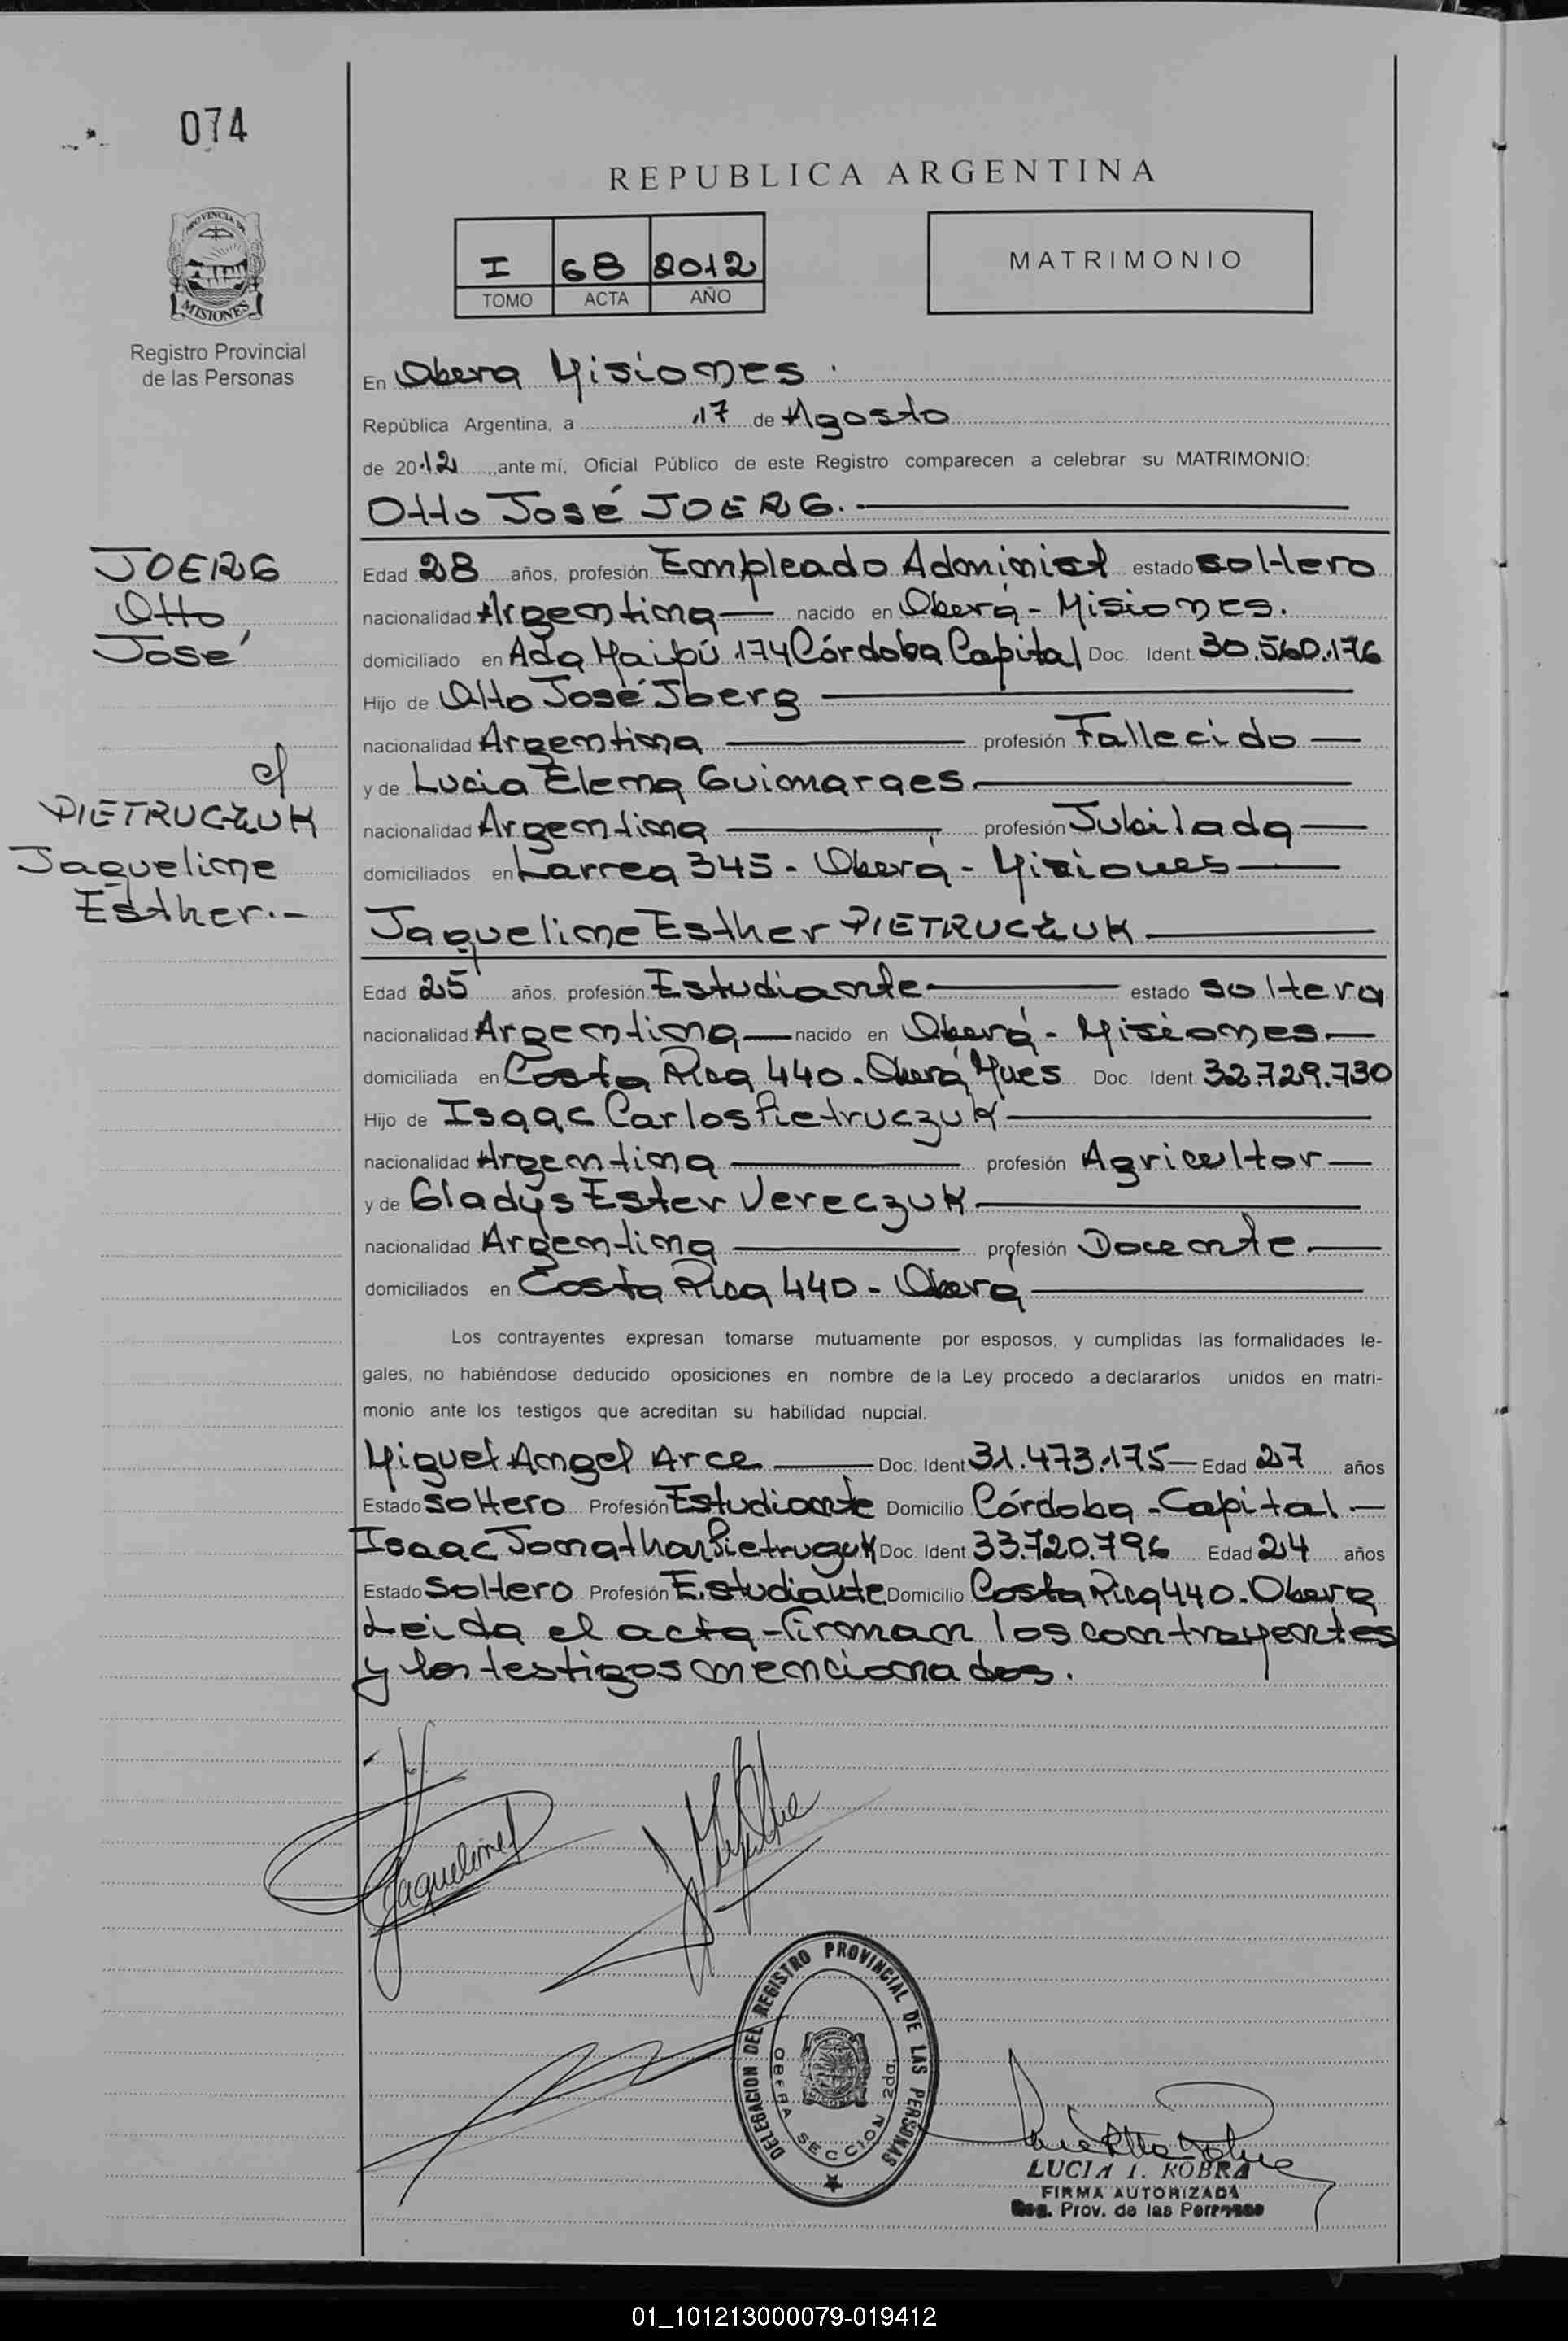 074
REPUBLICA ARGENTINA
PROVINCIA DE
MISIONES
Registro Provincial
de las Personas
I 68 2012
TOMO ACTA AÑO
MATRIMONIO
En Obera Misiones.
República Argentina, a 17 de Agosto
de 2012, ante mí, Oficial Público de este Registro comparecen a celebrar su MATRIMONIO:
Otto José JOERG.
JOERG
Otto
José
c/
PIETRUCZUK
Jaqueline
Esther.-
Edad 28 años, profesión Empleado Administ estado soltero
nacionalidad Argentina nacido en Oberá - Misiones.
domiciliado en Ada Maipú 174 Córdoba Capital Doc. Ident. 30.560.176
Hijo de Otto José Joerg
nacionalidad Argentina profesión Fallecido
y de Lucia Elena Guimaraes
nacionalidad Argentina profesión Jubilada
domiciliados en Larrea 345 - Oberá - Misiones
Jaqueline Esther PIETRUCZUK
Edad 25 años, profesión Estudiante estado soltera
nacionalidad Argentina nacido en Oberá - Misiones
domiciliada en Costa Rica 440. Oberá Mnes Doc. Ident. 32.729.730
Hijo de Isaac Carlos Pietruczuk
nacionalidad Argentina profesión Agricultor
y de Gladys Ester Vereczuk
nacionalidad Argentina profesión Docente
domiciliados en Costa Rica 440 - Oberá
Los contrayentes expresan tomarse mutuamente por esposos, y cumplidas las formalidades le-
gales, no habiéndose deducido oposiciones en nombre de la Ley procedo a declararlos unidos en matri-
monio ante los testigos que acreditan su habilidad nupcial.
Miguel Angel Arce Doc. Ident. 31.473.175 Edad 27 años
Estado soltero Profesión Estudiante Domicilio Córdoba - Capital
Isaac Jonathan Pietruzuk Doc. Ident. 33.720.796 Edad 24 años
Estado Soltero Profesión Estudiante Domicilio Costa Rica 440. Obera
Leida el acta - firman los contrayentes
y los testigos mencionados.
Jaqueline
DELEGACION DEL REGISTRO PROVINCIAL DE LAS PERSONAS
OBERA SECCION 2da.
LUCIA I. ROBRA
FIRMA AUTORIZADA
Reg. Prov. de las Personas
01_101213000079-019412